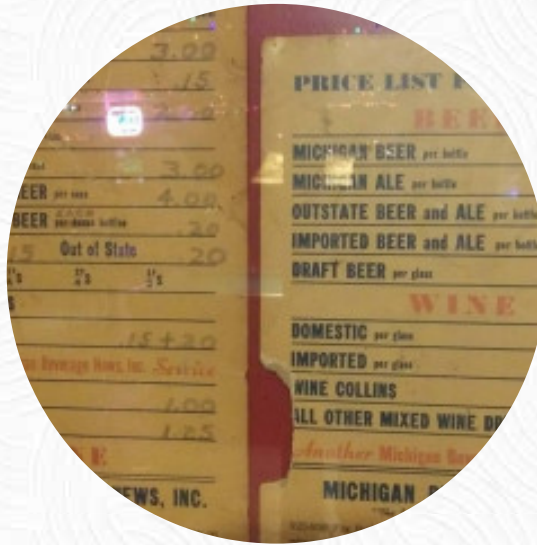 3.00
.15
3.00
EER per case 4.00
BEER EACH per dozen bottles .20
15 Out of State 20
.15+20
Beverage News, Inc. Service
1.00
1.25
E
EWS, INC.
PRICE LIST
BEE
MICHIGAN BEER per bottle
MICHIGAN ALE per bottle
OUTSTATE BEER and ALE per bottle
IMPORTED BEER and ALE per bottle
DRAFT BEER per glass
WINE
DOMESTIC per glass
IMPORTED per glass
WINE COLLINS
ALL OTHER MIXED WINE DR
Another Michigan Bev
MICHIGAN